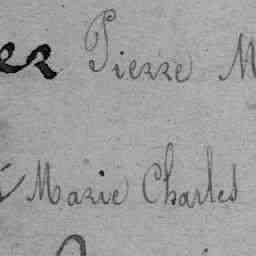 er Pierre M
Marie Charles